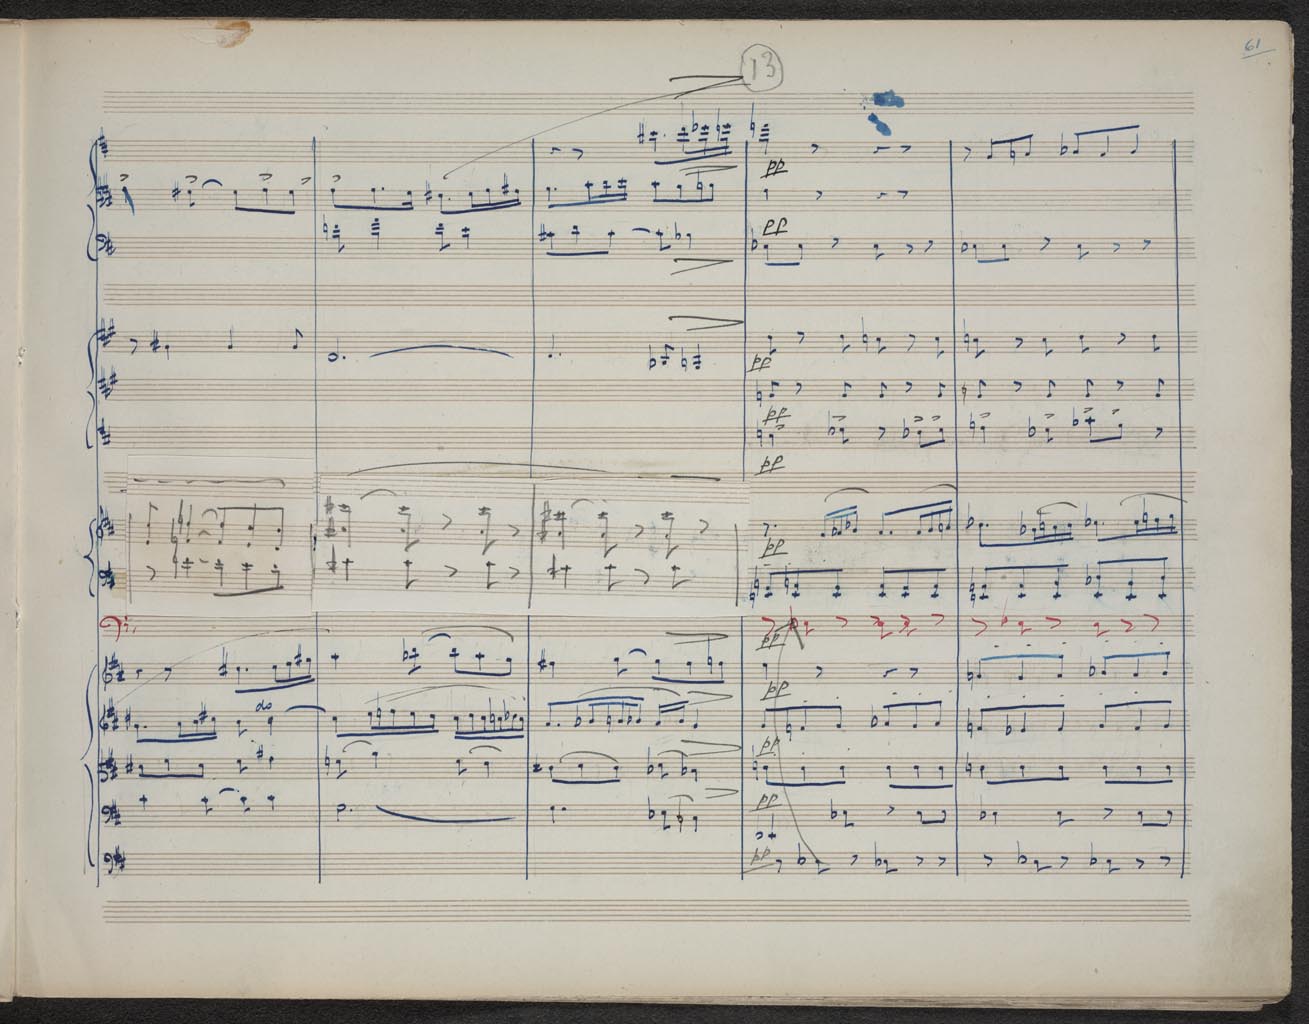 61
13
pp
pp
pp
pp
pp
pp
pp
pp
do
pp
pp
pp